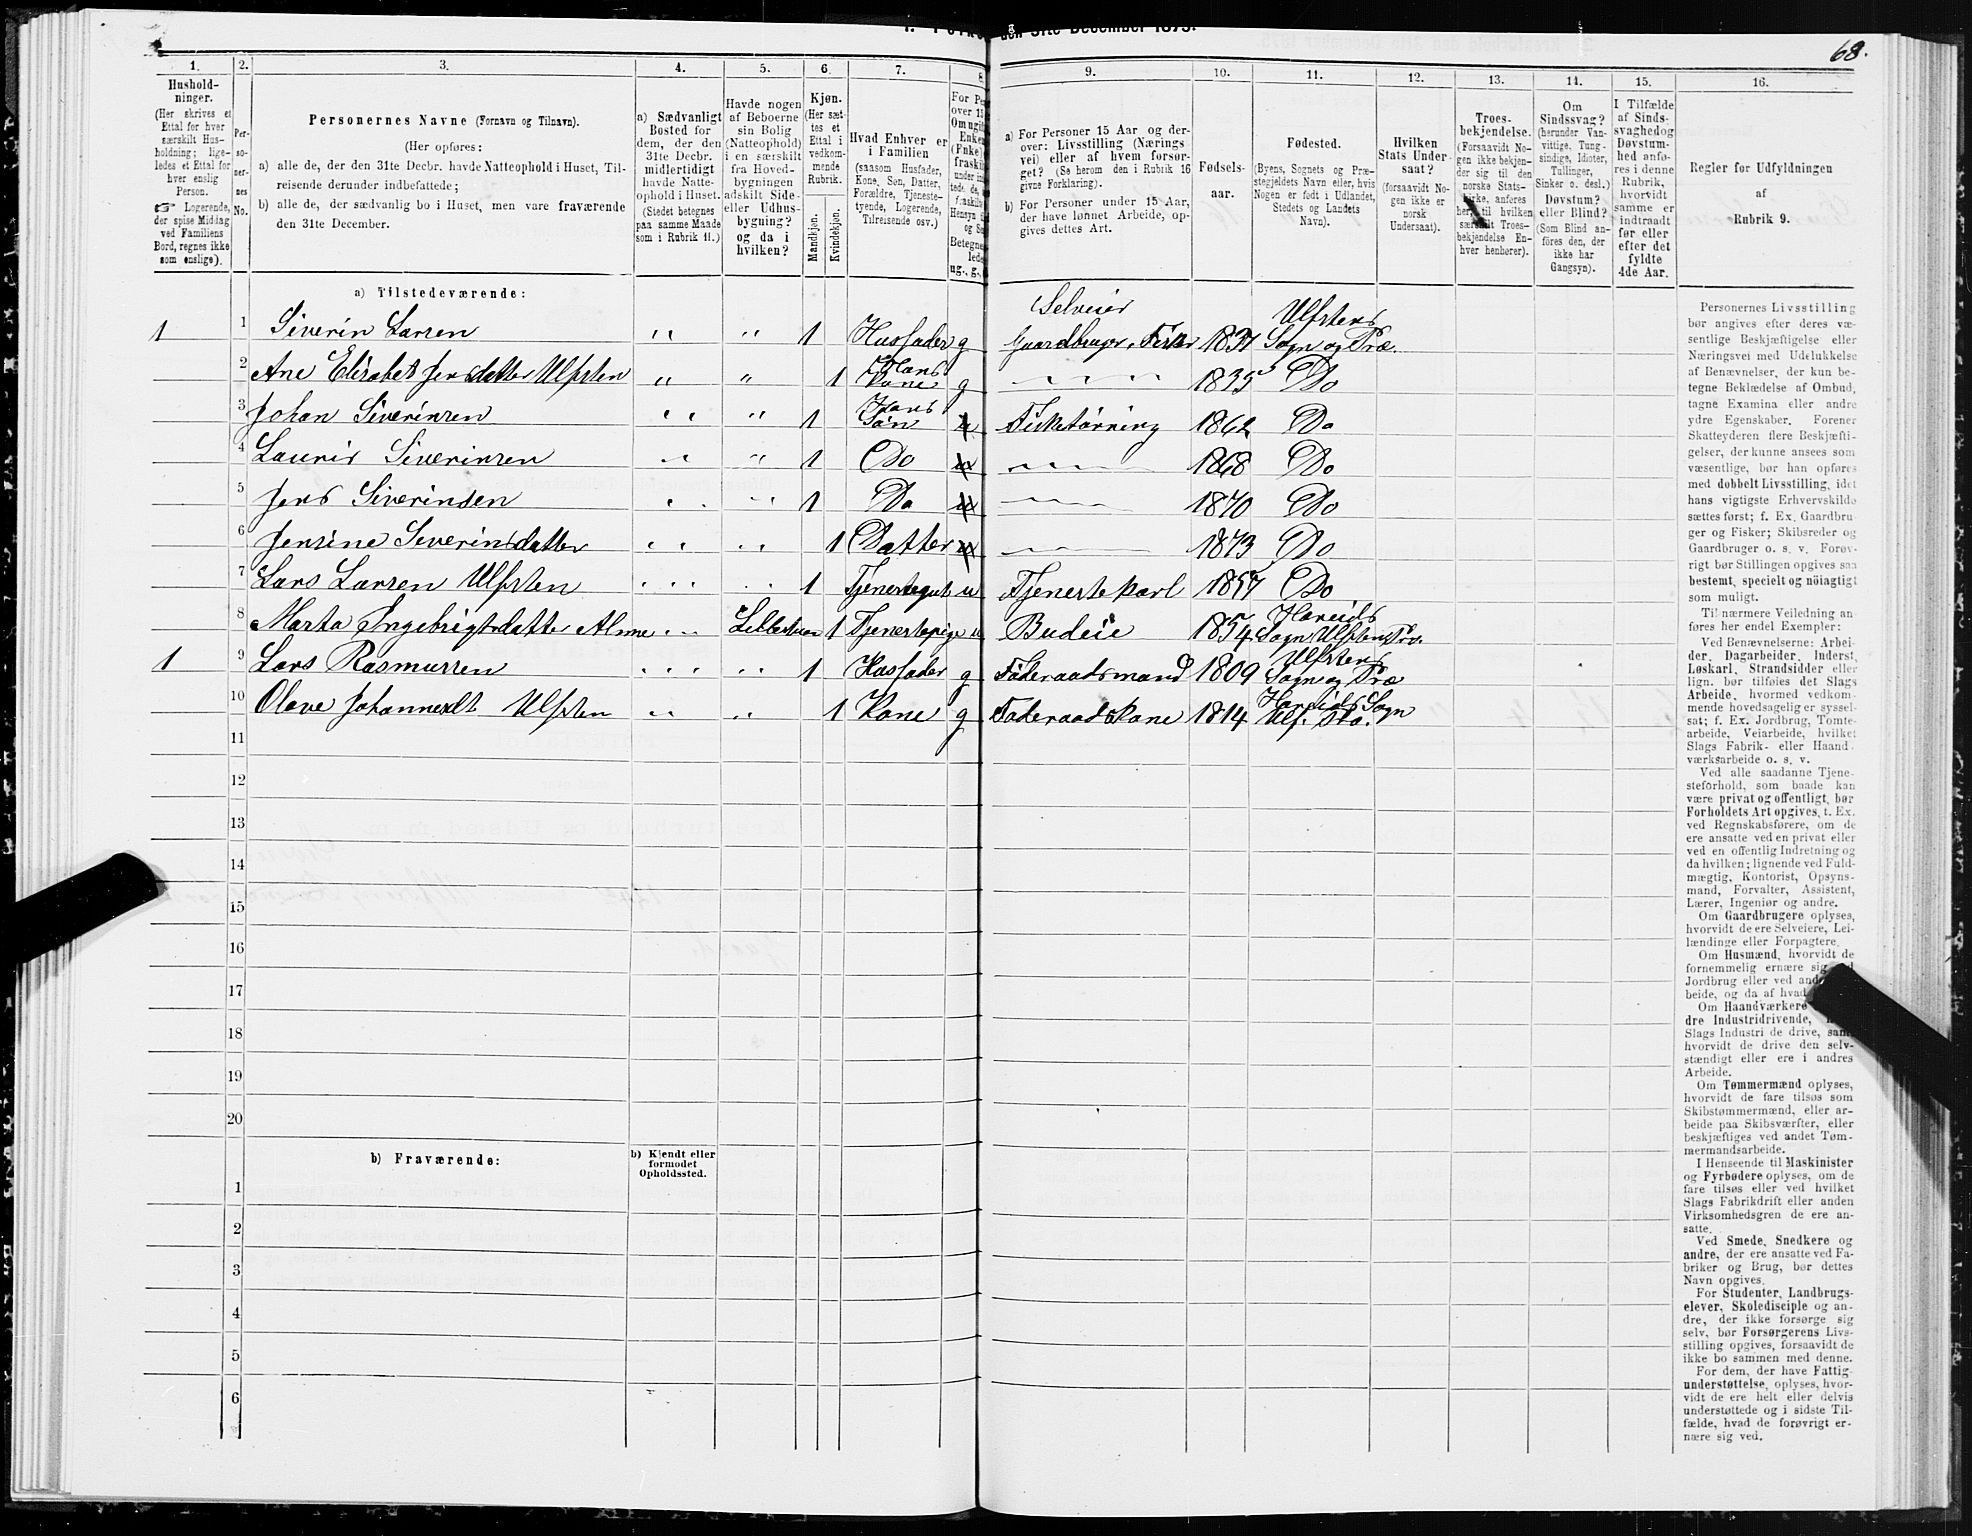 1. Folke den 31te December 1875.
68.
1.
2.
3.
4.
5.
6.
7.
8
9.
10.
11.
12.
13.
14.
15.
16.
Hushold-
ninger.
(Her skrives et
Ettal for hver
særskilt Hus-
holdning; lige-
ledes et Ettal for
hver enslig
Person.
☞ Logerende,
der spise Middag
ved Familiens
Bord, regnes ikke
som enslige).
Per-
so-
ner-
nes
No.
Personernes Navne (Fornavn og Tilnavn).
(Her opføres:
a) alle de, der den 31te Decbr. havde Natteophold i Huset, Til-
reisende derunder indbefattede;
b) alle de, der sædvanlig bo i Huset, men vare fraværende
den 31te December.
a) Sædvanligt
Bosted for
dem, der den
31te Decbr.
midlertidigt
havde Natte-
ophold i Huset.
(Stedet betegnes
paa samme Maade
som i Rubrik 11.)
Havde nogen
af Beboerne
sin Bolig
(Natteophold)
i en særskilt
fra Hoved-
bygningen
adskilt Side-
eller Udhus-
bygning?
og da i
hvilken?
Kjøn.
(Her sæt-
tes et
Ettal i
vedkom-
mende
Rubrik.
Mandkjøn.
Kvindekjøn.
Hvad Enhver er
i Familien
(saasom Husfader,
Kone, Søn, Datter,
Forældre, Tjeneste-
tyende, Logerende,
Tilreisende osv.)
For Pe
over 15
Om ugift
Enke
(Fnke)
fraski
Betegne
lede
ug., g.,
a) For Personer 15 Aar og der-
over: Livsstilling (Nærings
vei) eller af hvem forsør-
get? (Se herom den i Rubrik 16
givne Forklaring).
b) For Personer under 15 Aar,
der have lønnet Arbeide, op-
gives dettes Art.
Fødsels-
aar.
Fødested.
(Byens, Sognets og Præ-
stegjeldets Navn eller, hvis
Nogen er født i Udlandet,
Stedets og Landets
Navn).
Hvilken
Stats Under-
saat?
(forsaavidt No-
gen ikke er
norsk
Undersaat).
Troes-
bekjendelse.
(Forsaavidt No-
gen ikke bekjen-
der sig til den
norske Stats-
kirke, anføres
her, til hvilken
særskilt Troes-
bekjendelse En-
hver henhører).
Om
Sindssvag?
(herunder Van-
vittige, Tung-
sindige, Idioter,
Tullinger,
Sinker o. desl.)
Døvstum?
eller Blind?
(Som Blind an-
føres den, der
ikke har
Gangsyn).
I Tilfælde
af Sinds-
svaghed og
Døvstum-
hed anfø-
res i denne
Rubrik,
hvorvidt
samme er
indtraadt
før eller
efter det
fyldte
4de Aar.
Regler for Udfyldningen
af
Rubrik 9.
a) Tilstedeværende:
1 1 Siverin Larsen " " 1 Husfader g Selveier Gaardbruger, Fisker 1837 Ulfstens Sogn og Præ.
2 Ane Elisabet Jensdatter Ulfsten " " 1 Hans Kone g 1835 Do
3 Johan Siverinsen " " 1 Hans Søn u Fisketørring 1862 Do
4 Laurits Siverinsen " " 1 Do u 1868 Do
5 Jens Siverinsen " " 1 Do u 1870 Do
6 Jensine Siverinsdatter " " 1 Datter u 1873 Do
7 Lars Larsen Ulfsten " " 1 Tjenestegut u Tjenestekarl 1857 Do
8 Marta Ingebrigtsdatter Alme " 1 Tjenestepige u Budeie 1854 Hareids Sogn Ulfsten Præ.
1 9 Lars Rasmussen " " 1 Husfader g Føderaadsmand 1809 Ulfstens Sogn og Præ
10 Olave Johannesdt Ulfsten " " 1 Kone g Føderaadskone 1814 Hareids Sogn Ulf. Præ.
11
12
13
14
15
16
17
18
19
20
b) Fraværende:
b) Kjendt eller
formodet
Opholdssted.
1
2
3
4
5
6
Personernes Livsstilling
bør angives efter deres væ-
sentlige Beskjæftigelse eller
Næringsvei med Udelukkelse
af Benævnelser, der kun be-
tegne Beklædelse af Ombud,
tagne Examina eller andre
ydre Egenskaber. Forener
Skatteyderen flere Beskjæfti-
gelser, der kunne ansees som
væsentlige, bør han opføres
med dobbelt Livsstilling, idet
hans vigtigste Erhvervskilde
sættes først; f. Ex. Gaardbru-
ger og Fisker; Skibsreder og
Gaardbruger o. s. v. Forøv-
rigt bør Stillingen opgives saa
bestemt, specielt og nöiagtigt
som muligt.
Til nærmere Veiledning an-
føres her endel Exempler:
Ved Benævnelserne: Arbei-
der, Dagarbeider, Inderst,
Løskarl, Strandsidder eller
lign. bør tilføies det Slags
Arbeide, hvormed vedkom-
mende hovedsagelig er syssel-
sat; f. Ex. Jordbrug, Tomte-
arbeide, Veiarbeide, hvilket
Slags Fabrik- eller Haand-
værksarbeide o. s. v.
Ved alle saadanne Tjene-
steforhold, som baade kan
være privat og offentligt, bør
Forholdets Art opgives, t. Ex.
ved Regnskabsførere, om de
ere ansatte ved en privat eller
ved en offentlig Indretning og
da hvilken; lignende ved Fuld-
mægtig, Kontorist, Opsyns-
mand, Forvalter, Assistent,
Lærer, Ingeniør og andre.
Om Gaardbrugere oplyses,
hvorvidt de ere Selveiere, Lei-
lændinge eller Forpagtere.
Om Husmænd, hvorvidt de
fornemmelig ernære sig
Jordbrug eller ved and
beide, og da af hvad
Om Haandværkere
dre Industridrivende,
Slags Industri de drive, samt
hvorvidt de drive den selv-
stændigt eller ere i andres
Arbeide.
Om Tømmermænd oplyses,
hvorvidt de fare tilsøs som
Skibstømmermænd, eller ar-
beide paa Skibsværfter, eller
beskjæftiges ved andet Tøm-
mermandsarbeide.
I Henseende til Maskinister
og Fyrbødere oplyses, om de
fare tilsøs eller ved hvilket
Slags Fabrikdrift eller anden
Virksomhedsgren de ere an-
satte.
Ved Smede, Snedkere og
andre, der ere ansatte ved Fa-
briker og Brug, bør dettes
Navn opgives.
For Studenter, Landbrugs-
elever, Skoledisciple og an-
dre, der ikke forsørge sig
selv, bør Forsørgerens Livs-
stilling opgives, forsaavidt de
ikke bo sammen med denne.
For dem, der have Fattig-
understøttelse, oplyses, hvor-
vidt de ere helt eller delvis
understøttede og i sidste Til-
fælde, hvad de forøvrigt er-
nære sig ved.